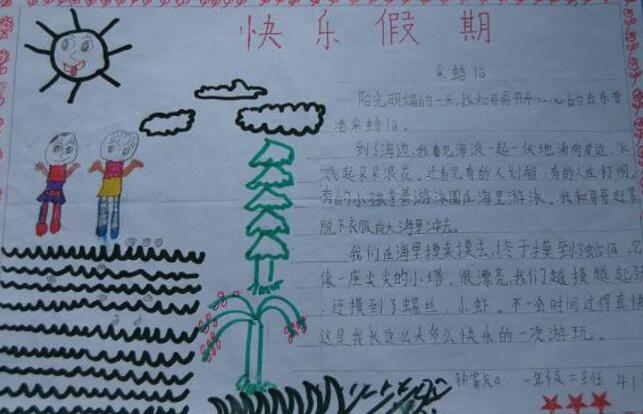 快乐假期
采蛤后
阳光明媚的一天,我和哥哥开开 的去东营
港采蛤后。
到了海边,我看见海浪一起一伏地涌向岸边,飞
溅起朵朵浪花。还看见有的人划艇,有的人在打闹,
有的小孩拿着游泳圈在海里游泳。我和哥哥赶
脱下衣服向大海里冲去。
我们在海里摸来摸去,终于摸到了蛤后,
像一座尖尖的小塔,很漂亮。我们越摸越起
还摸到了螺丝、小虾。不一会时间过得真
这是我长这么大多么快乐的一次游玩。
一年级二班 41